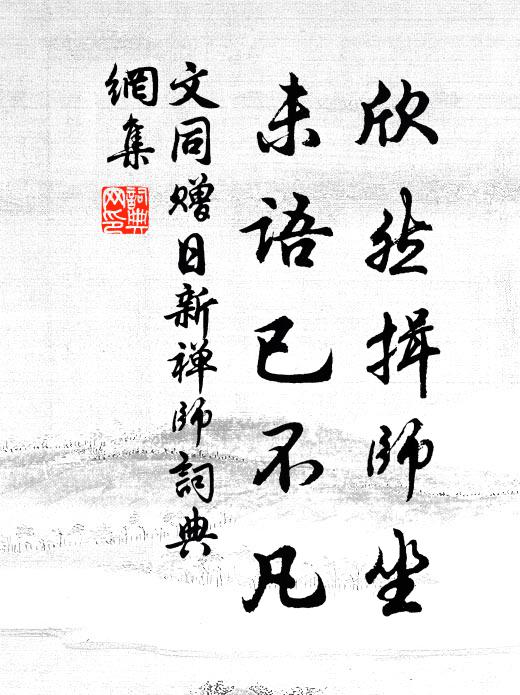 欣然揖师坐
未语已不凡
文同赠日新禅师词典
网集
词典
网印